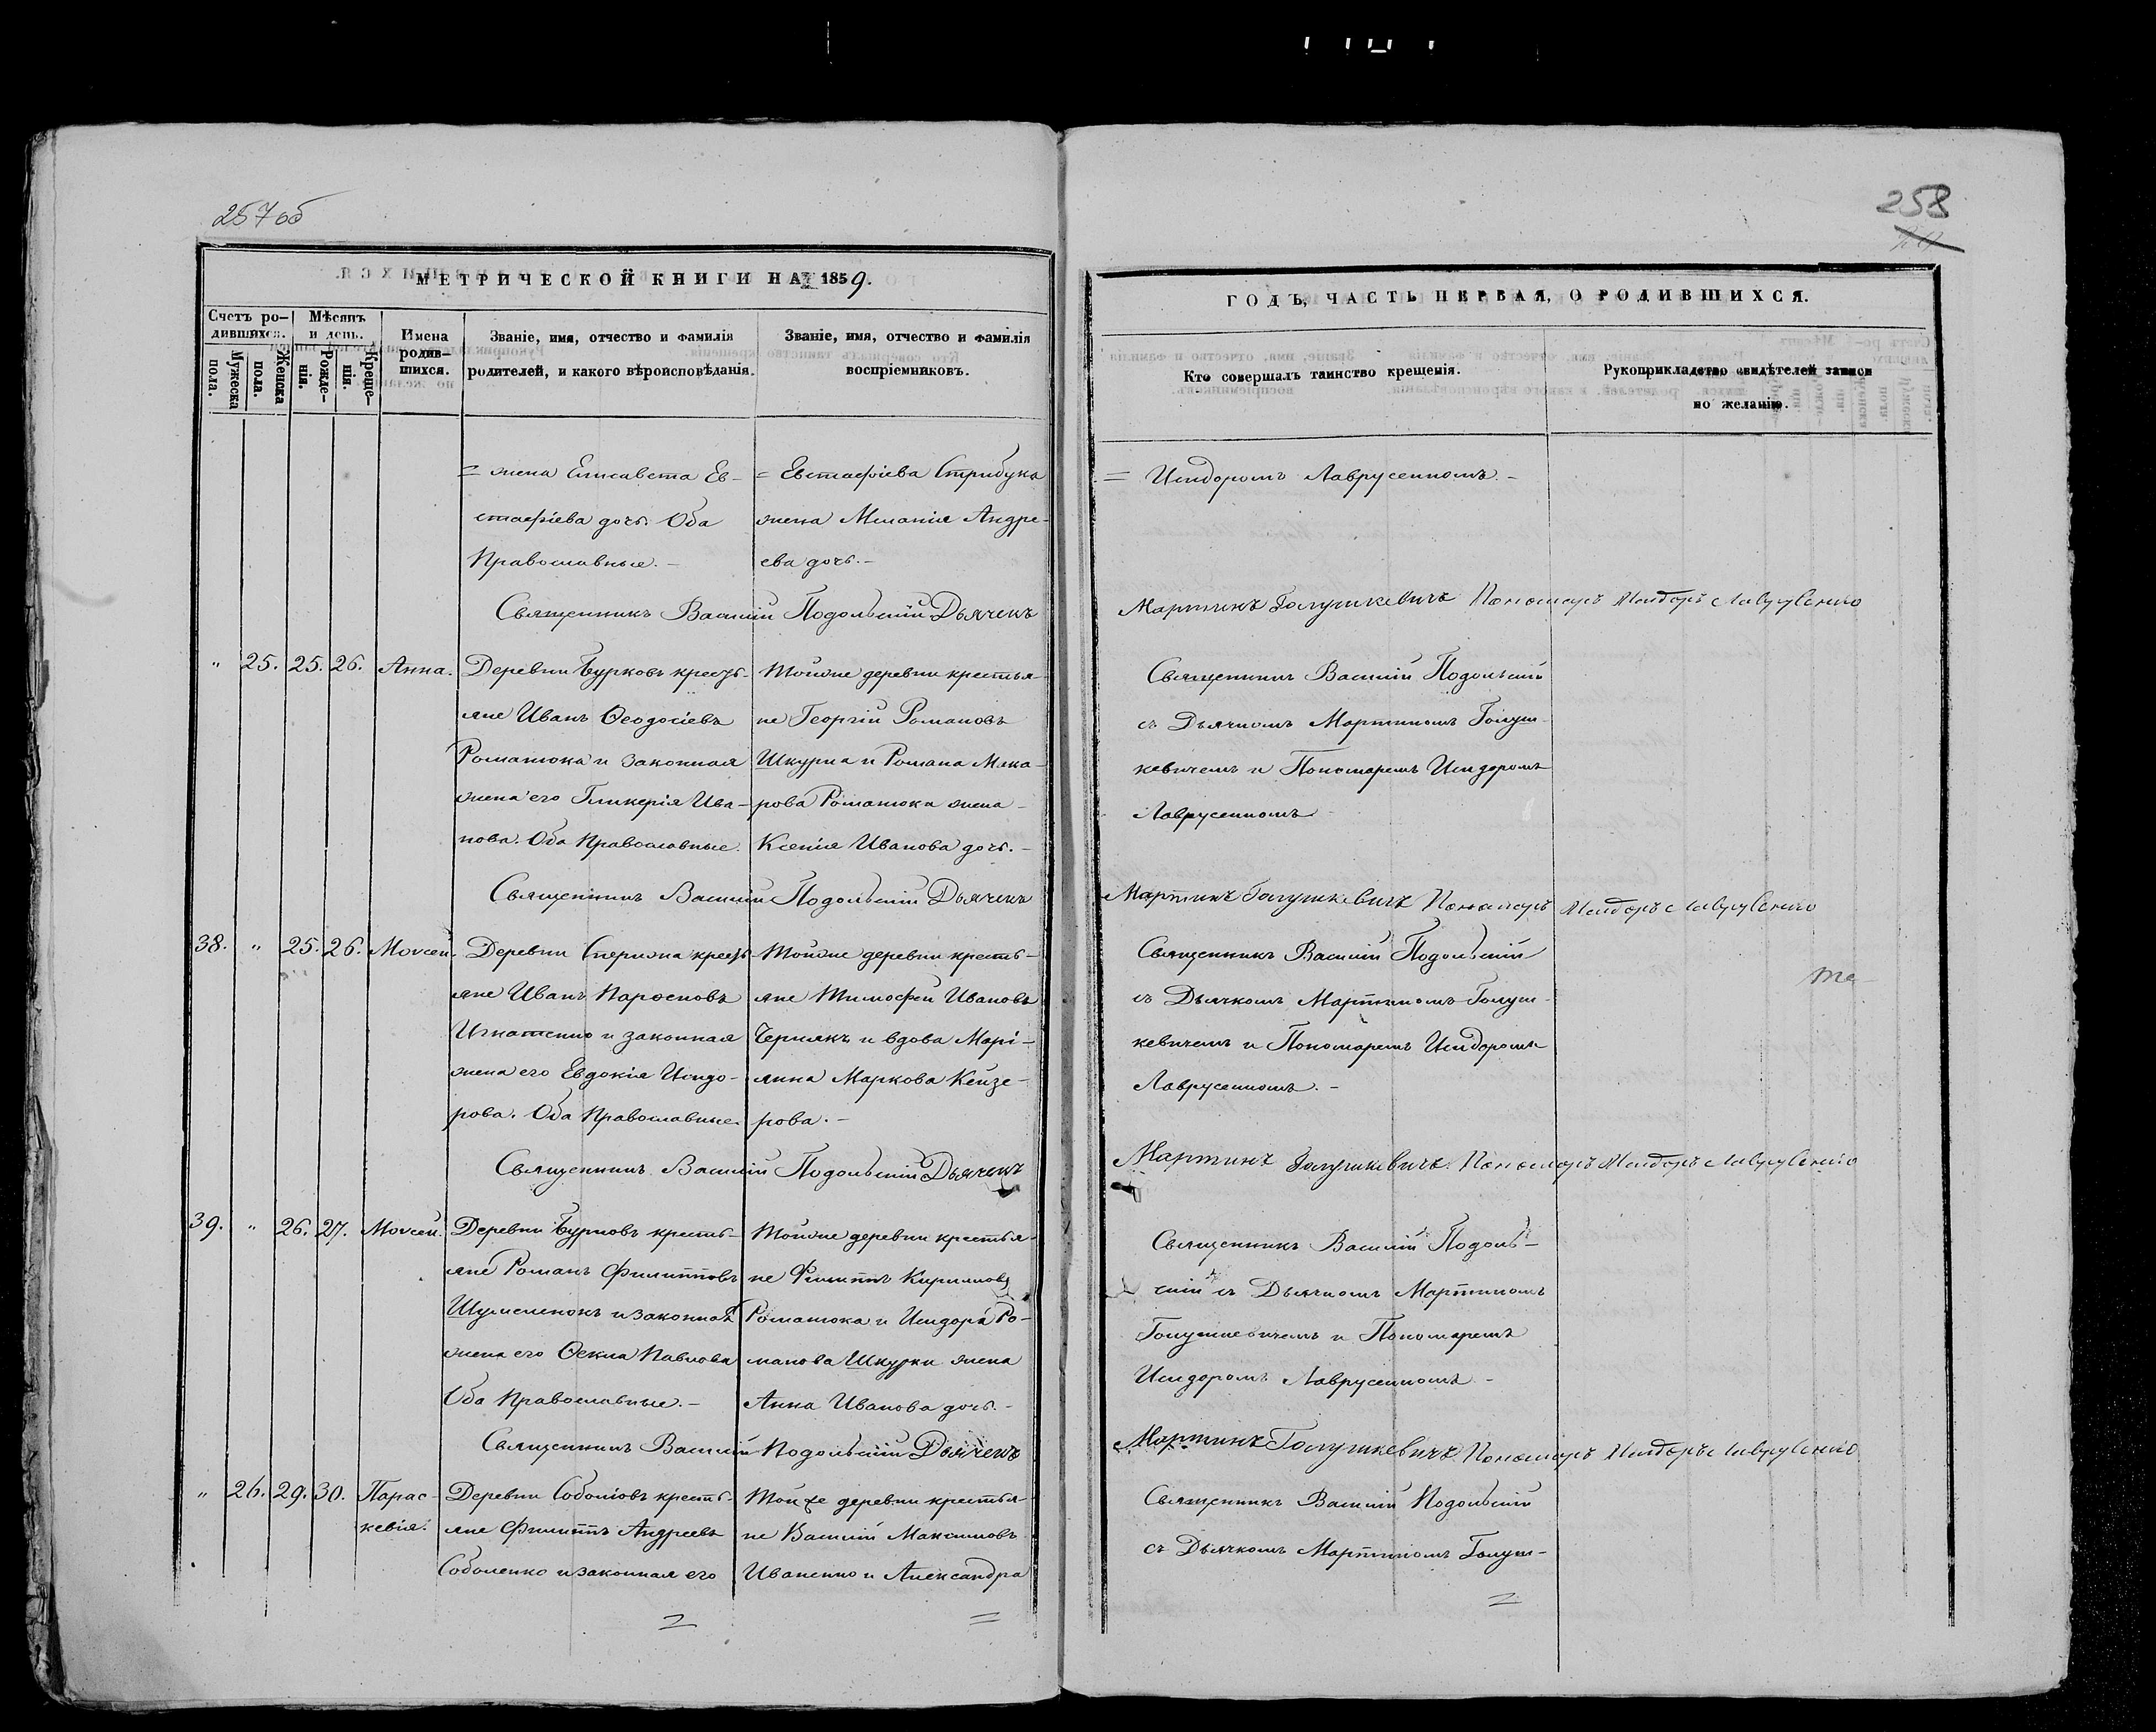 257 об
МЕТРИЧЕСКОЙ КНИГИ НА 1859.
Счетъ ро-
дившихся.
Мужеска пола.
Женска пола.
Мѣсяцъ
и день.
Рожде-
нія.
Креще-
нія.
Имена
родив-
шихся.
Званіе, имя, отчество и фамилія
родителей, и какого вѣроисповѣданія.
Званіе, имя, отчество и фамилія
воспріемниковъ.
= жена Елисавета Ев-
стафіева дочь. Оба
Православные. -
= Евстафіева Стрибука
жена Меланія Андре-
ева дочь. -
Священникъ Василій Подольскій Дьячекъ
" 25. 25. 26. Анна.
Деревни Бурковъ кресть-
яне Иванъ Ѳеодосіевъ
Романюка и законная
жена его Гликерія Ива-
нова. Оба Православные.
Тойже деревни крестья-
не Георгій Романовъ
Шкурка и Романа Мака-
рова Романюка жена
Ксенія Иванова дочь. -
Священникъ Василій Подольскій Дьячекъ
38. " 25. 26. Моѵсей.
Деревни кресть-
яне Иванъ Парѳеновъ
Игнатенко и законная
жена его Евдокія Исидо-
рова. Оба Православные.
Тойже деревни кресть-
яне Тимофей Ивановъ
Чернякъ и вдова Марі-
анна Маркова Кейзе-
рова. -
Священникъ Василій Подольскій Дьячекъ
39. " 26. 27. Моѵсей.
Деревни Бурковъ кресть-
яне Романъ Филипповъ
Шумеленокъ и законная
жена его Ѳекла Павлова
Оба Православные. -
Тойже деревни крестья-
не Филиппъ Кириловъ
Романюка и Исидора Ро-
манова Шкурки жена
Анна Иванова дочь. -
Священникъ Василій Подольскій Дьячекъ
" 26. 29. 30. Парас-
кевія.
Деревни Соболіовъ кресть-
яне Филиппъ Андреевъ
Соболенко и законная его
=
Той же деревни крестья-
не Василій Максимовъ
Иваненко и Александра
=
258
ГОДЪ, ЧАСТЬ ПЕРВАЯ, О РОДИВШИХСЯ.
Кто совершалъ таинство крещенія.
Рукоприкладство свидѣтелей записи
по желанію.
= Исидоромъ Лаврусенкомъ. -
Мартинъ Голушкевичъ Пономарь Исидоръ Лаврусенко
Священникъ Василій Подольскій
съ Дьячкомъ Мартиномъ Голуш-
кевичемъ и Пономаремъ Исидоромъ
Лаврусенкомъ
Мартинъ Голушкевичъ Пономарь Исидоръ Лаврусенко
Священникъ Василій Подольскій
съ Дьячкомъ Мартиномъ Голуш-
кевичемъ и Пономаремъ Исидоромъ
Лаврусенкомъ. -
Мартинъ Голушкевичъ Пономарь Исидоръ Лаврусенко
Священникъ Василій Подоль-
скій съ Дьячкомъ Мартиномъ
Голушкевичемъ и Пономаремъ
Исидоромъ Лаврусенкомъ -
Мартинъ Голушкевичъ Пономарь Исидоръ Лаврусенко
Священникъ Василій Подольскій
съ Дьячкомъ Мартиномъ Голуш-
=